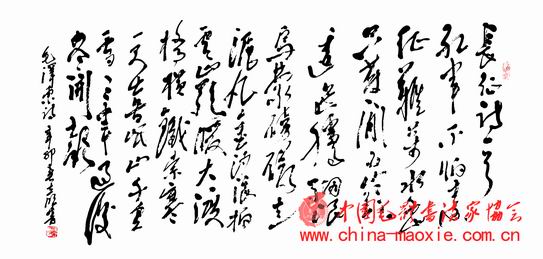 長征诗一首
红軍不怕遠
征難萬水千山
只等闲五岭
逶迤腾细浪
烏蒙磅礴走
泥丸金沙浪拍
雲崖暖大渡
橋横鐵索寒
更喜岷山千里
雪三軍过後
尽開颜
毛澤东诗 辛卯 書
中国毛体书法家協会
www.china-maoxie.com.cn